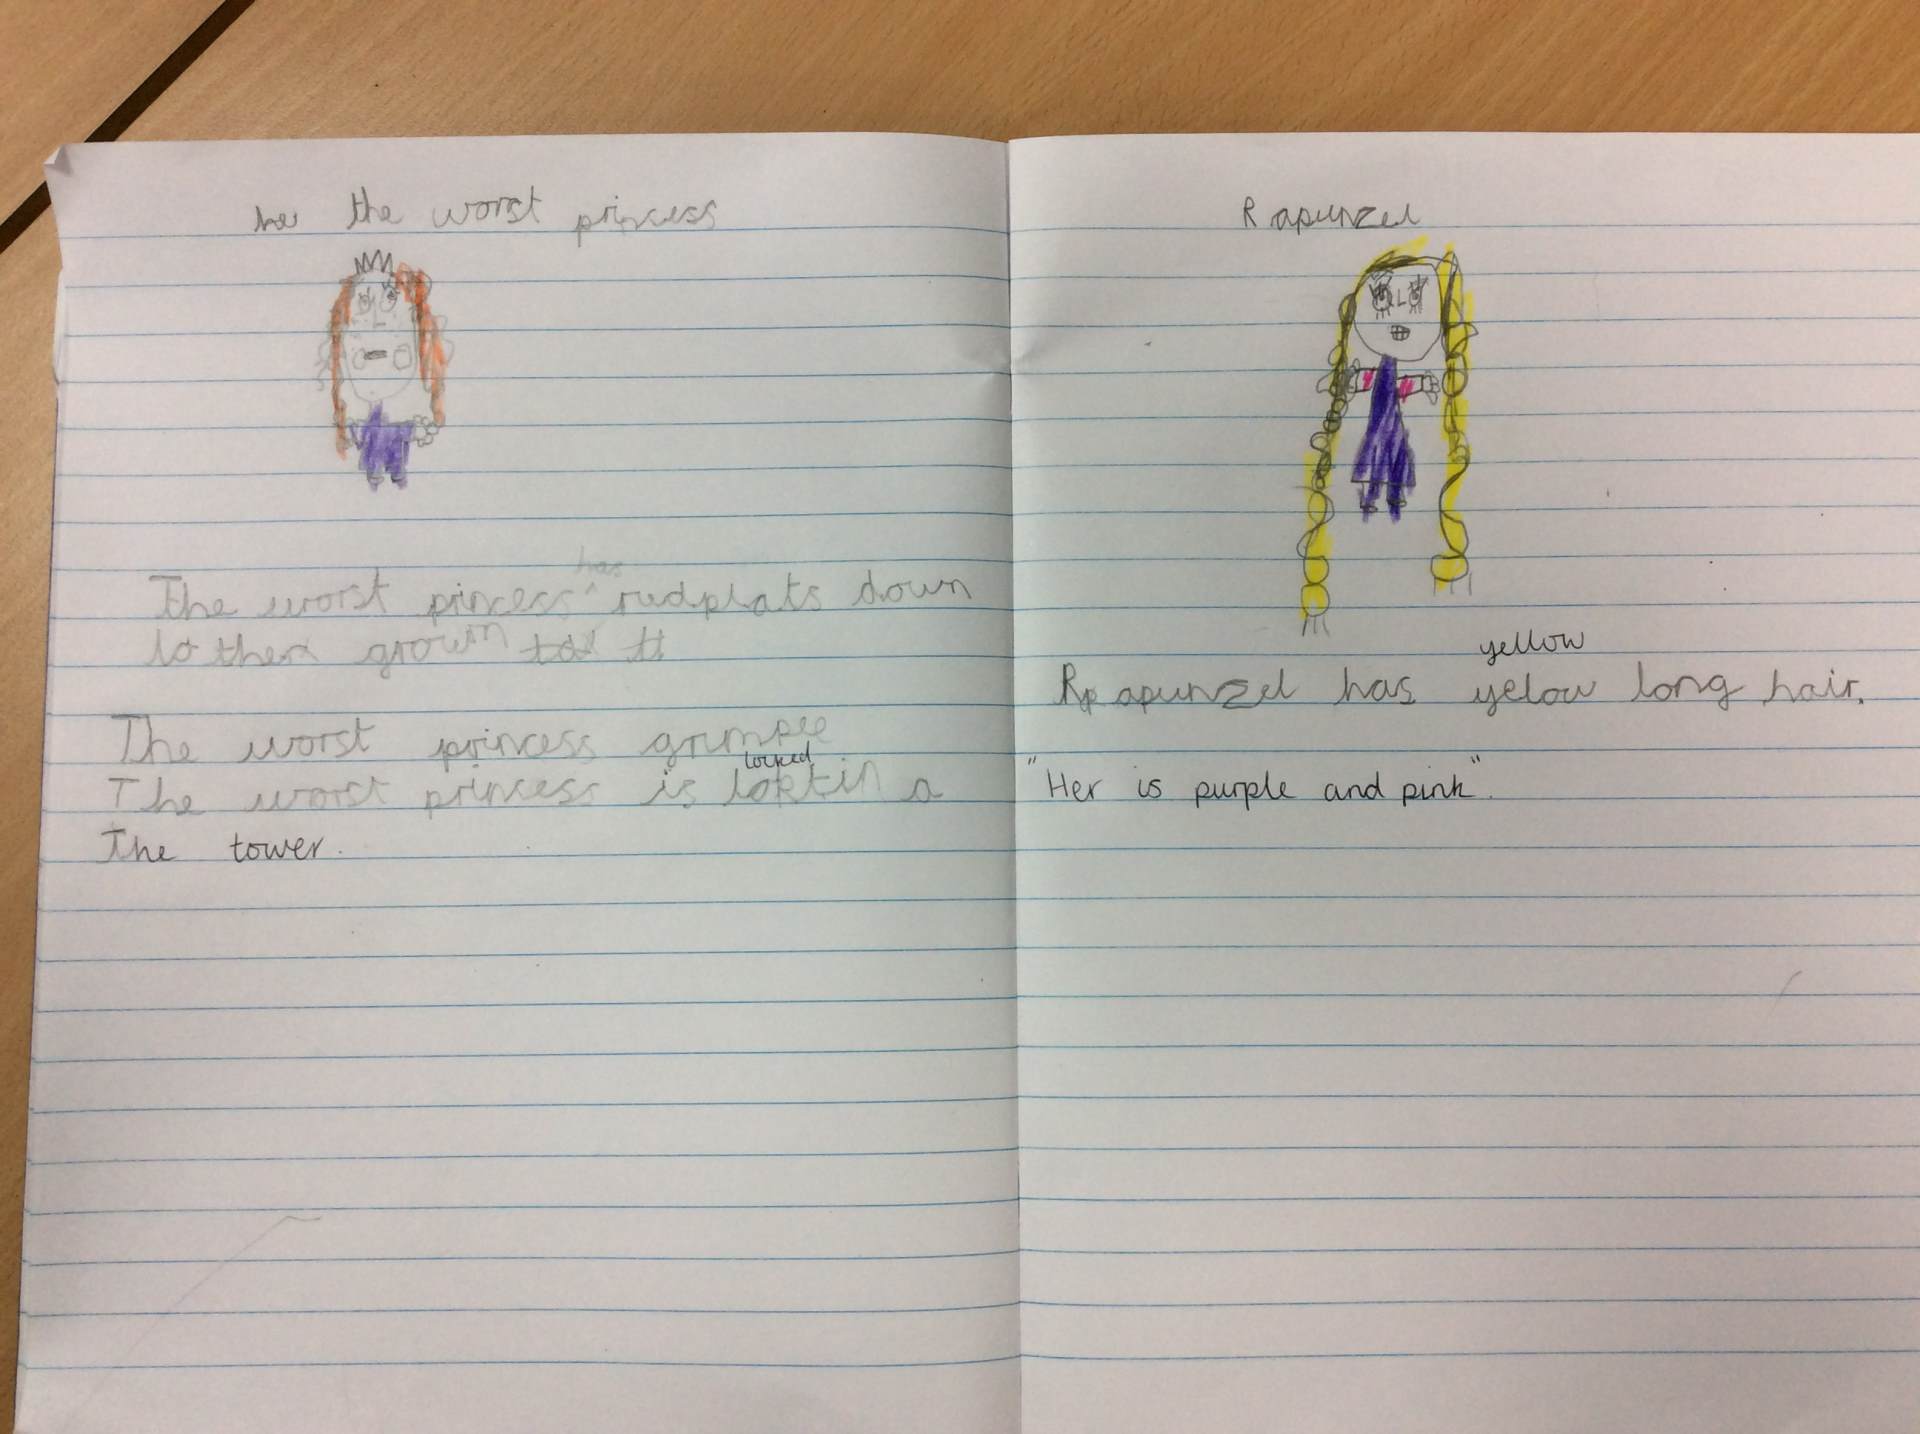 the worst princess
has
The worst princess redplats down
to the grown
The worst princess grumpee
locked
The worst princess is loktin a
The tower.
Rapunzel
yellow
Rapunzel has yelow long hair.
"Her is purple and pink".